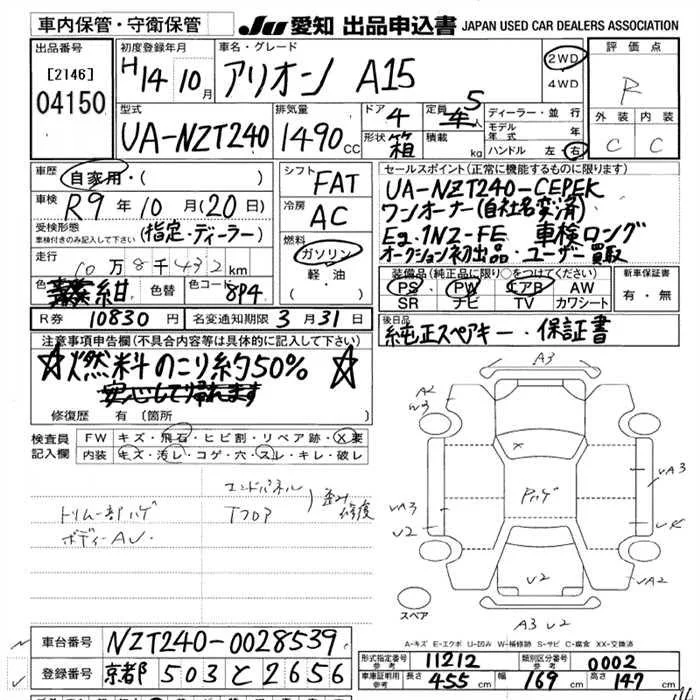 車内保管・守衛保管
JU 愛知 出品申込書 JAPAN USED CAR DEALERS ASSOCIATION
出品番号
[2146]
04150
初度登録年月
H14年10月
車名・グレード
アリオン A15
2WD
4WD
評価点
R
外装 内装
C C
型式
UA-NZT240
排気量
1490 CC
ドア
4
定員
5人
形状
箱
積載
kg
ディーラー・並行
モデル年式 年
ハンドル 左・右
車歴
自家用・( )
車検
R9年10月(20日)
受検形態
車検付きのみ記入して下さい
(指定・ディーラー)
走行
10万8千432km
色
紺
色替
色コード
8P4
シフト
FAT
冷房
AC
燃料
ガソリン
軽・油
( )
セールスポイント(正常に機能するものに限ります)
UA-NZT240-CEPEK
ワンオーナー(自社名変済)
Eg.1NZ-FE 車検ロング
オークション初出品・ユーザー買取
装備品(純正品に限り○をつけてください)
PS PW エアB AW
SR ナビ TV カワシート
新車保証書
有・無
R券 10830円 名変通知期限 3月31日
後日品
純正スペアキー・保証書
注意事項申告欄(不具合内容等は具体的に記入して下さい)
☆燃料のこり約50% ☆
修復歴 有(箇所
検査員
記入欄
FW キズ・飛石・ヒビ割・リペア跡・X要
内装 キズ・汚レ・コゲ・穴・スレ・キレ・破レ
エンドパネル
Tフロア
歪み
修復
トリム一部ハゲ
A3
A2
W3
Pハゲ
VA3
VA3
V2
V2
VA2
A3 V2
スペア
A-キズ E-エクボ U-凹み W-補修跡 S-サビ C-腐食 XX-交換済
車台番号 NZT240-0028539
登録番号 京都 503 と 2656
形式指定番号
参考
11212
類別区分番号
参考
0002
車庫証明用
参考
長さ 455 cm 幅 169 cm 高さ 147 cm